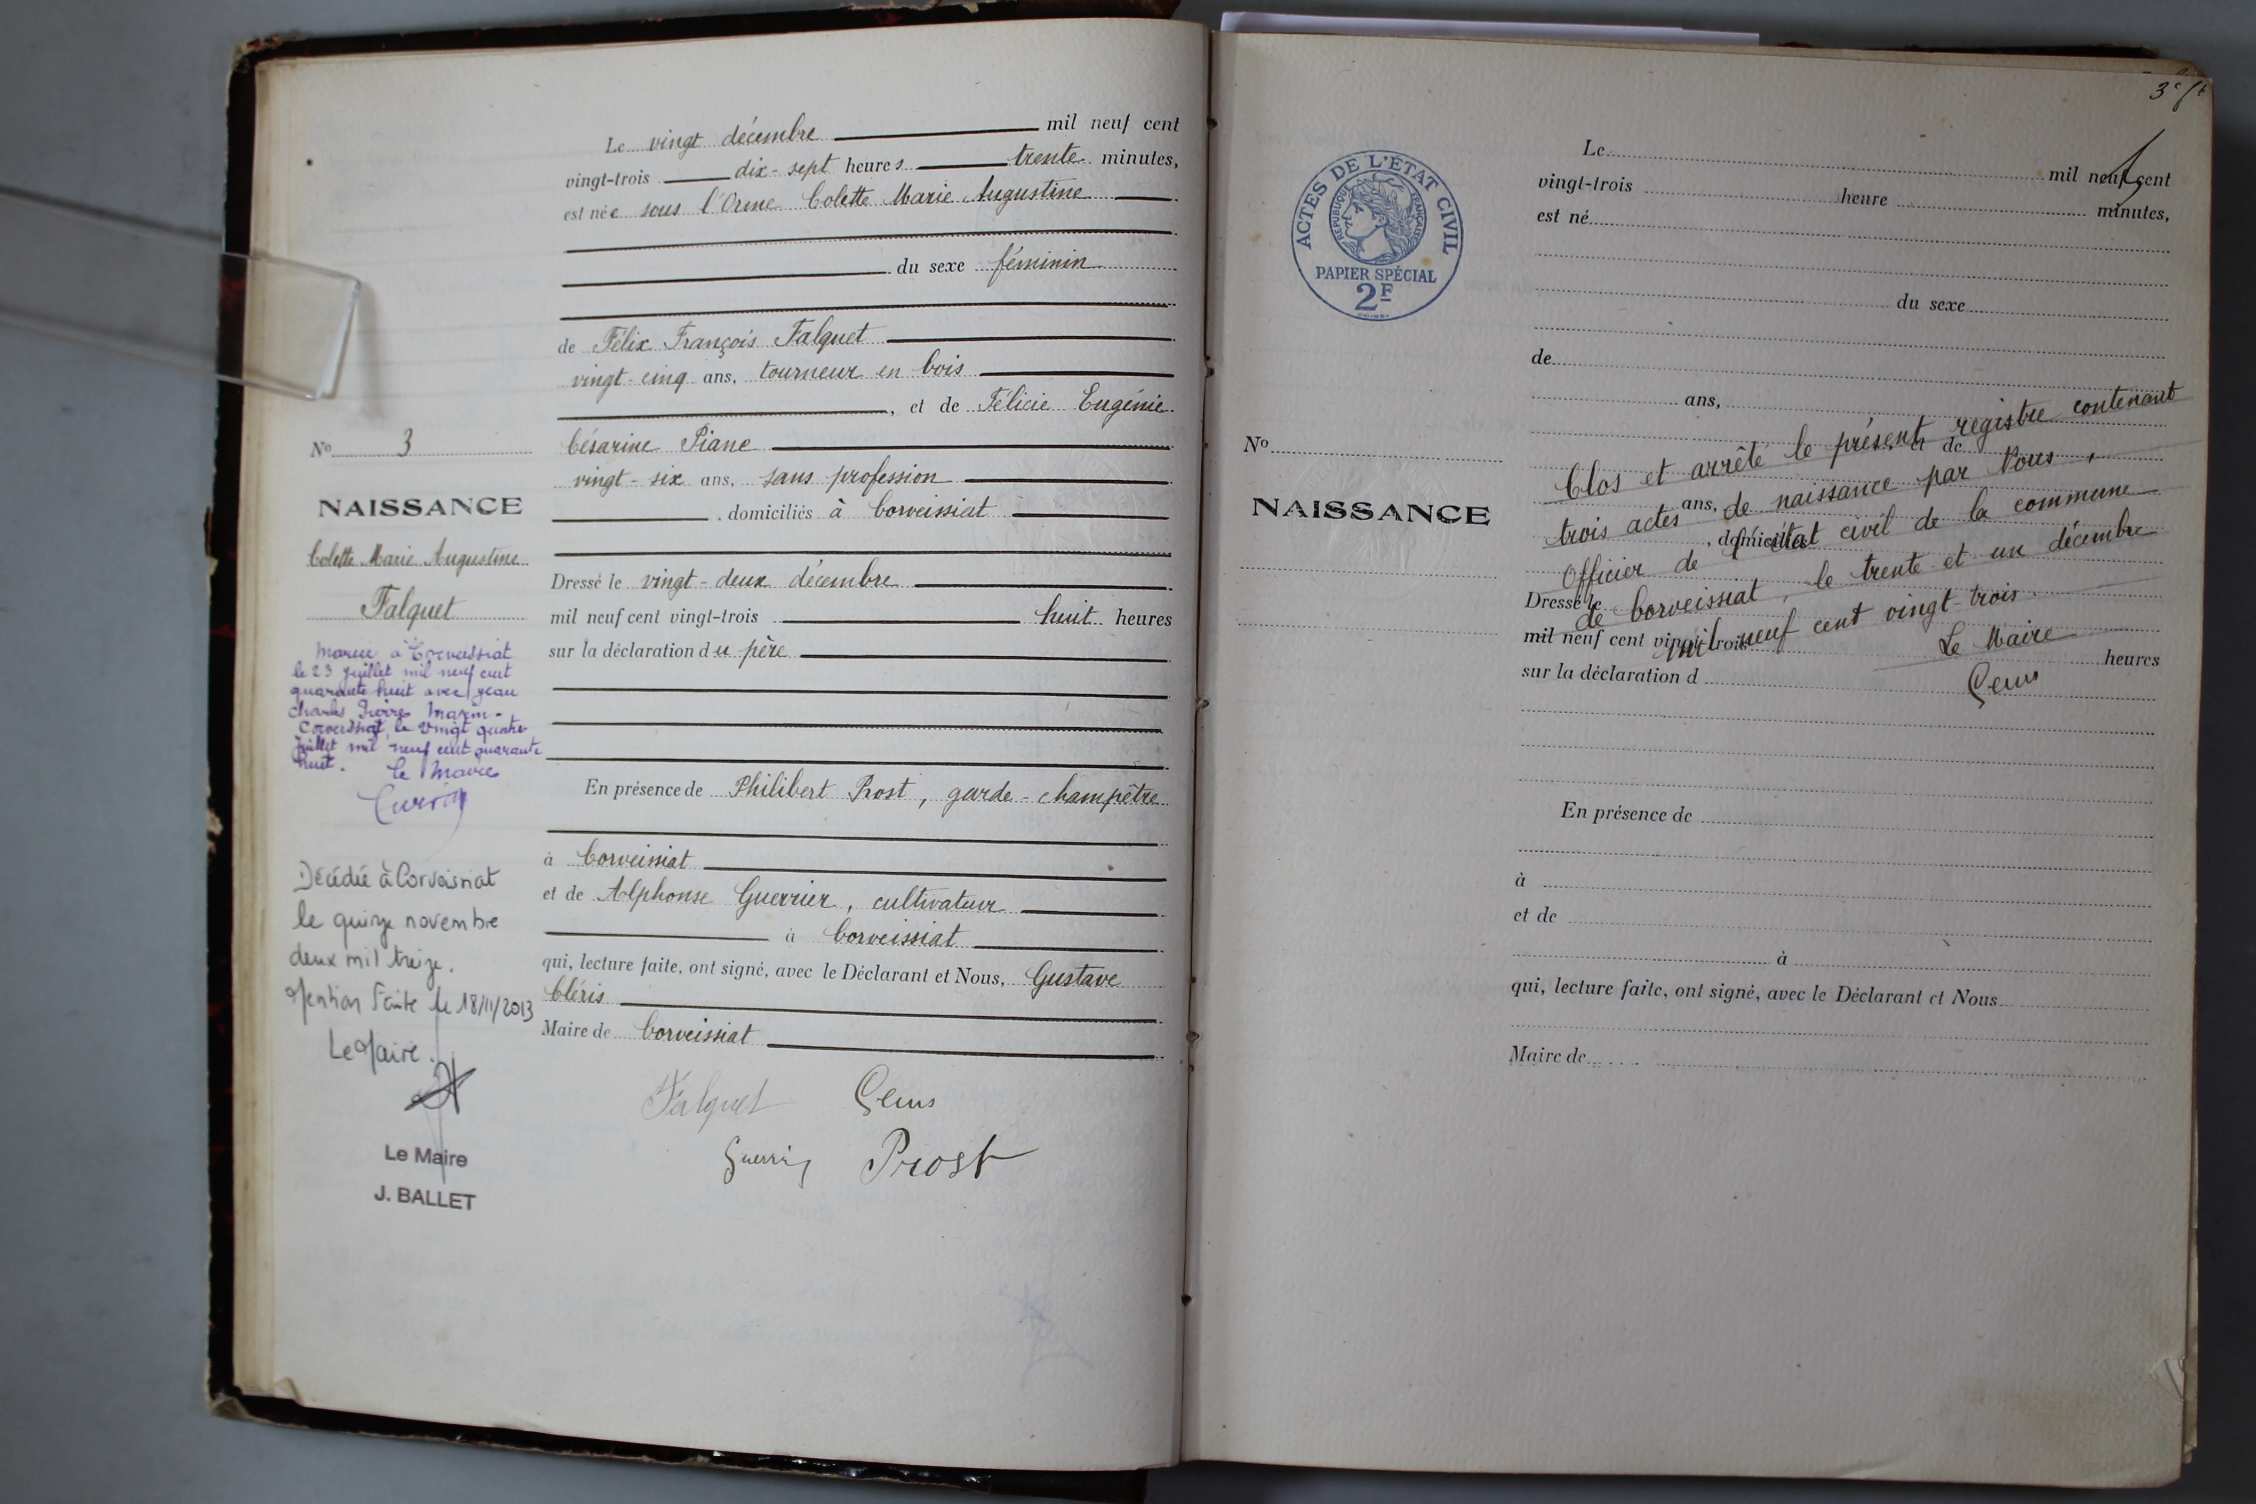 Le vingt décembre mil neuf cent
vingt-trois dix-sept heures trente minutes,
est née sous l'Orme Colette Marie Augustine
du sexe féminin
de Félix François Falquet
vingt-cinq ans, tourneur en bois
, et de Félicie Eugénie
Césarine Piane
vingt-six ans, sans profession
, domiciliés à Corveissiat
Dressé le vingt-deux décembre
mil neuf cent vingt-trois huit heures
sur la déclaration du père
En présence de Philibert Prost, garde-champêtre
à Corveissiat
et de Alphonse Guerrier, cultivateur
à Corveissiat
qui, lecture faite, ont signé, avec le Déclarant et Nous, Gustave
Cléris
Maire de Corveissiat
Falquet
Prost
No 3
NAISSANCE
Colette Marie Augustine
Falquet
Mariée à Corveissiat
le 23 juillet mil neuf cent
quarante huit avec Jean
Charles Pierre
Corveissiat, le vingt quatre
juillet mil neuf cent quarante
huit. Le Maire
Décédée à Corveissiat
le quinze novembre
deux mil treize.
Mention faite le 18/11/2013
Le Maire.
Le Maire
J. BALLET
3e
ACTES DE L'ÉTAT CIVIL
RÉPUBLIQUE FRANÇAISE
PAPIER SPÉCIAL
2F
No
NAISSANCE
Le mil neuf cent
vingt-trois heure minutes,
est né
du sexe
de
ans,
et de
ans,
, domiciliés
Dressé le
mil neuf cent vingt-trois heures
sur la déclaration d
Clos et arrêté le présent registre contenant
trois actes de naissance par Nous,
Officier de l'état civil de la commune
de Corveissiat, le trente et un décembre
mil neuf cent vingt-trois.
Le Maire
En présence de
à
et de
à
qui, lecture faite, ont signé, avec le Déclarant et Nous
Maire de